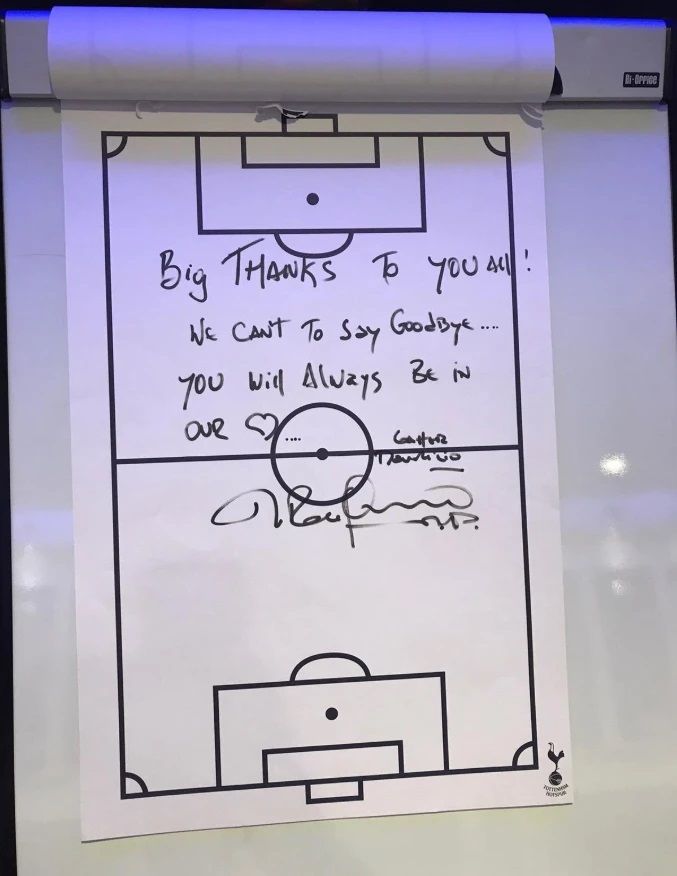 Bi-OFFICE
Big THANKS To YOU All!
WE CANT To Say GoodBye ....
YOU Will Always BE iN
OUR ♡ ....
TOTTENHAM
HOTSPUR